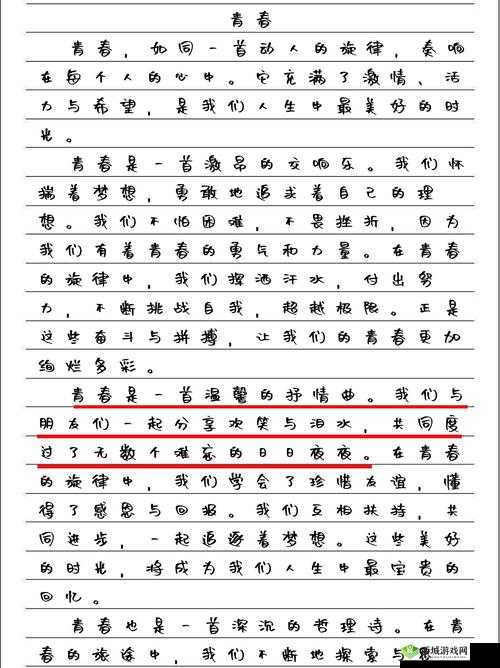 青春
青春，如同一首动人的旋律，奏响
在每个人的心中。它充满了激情、活
力与希望，是我们人生中最美好的时
光。
青春是一首激昂的交响乐。我们怀
揣着梦想，勇敢地追求着自己的理
想。我们不怕困难，不畏挫折，因为
我们有着青春的勇气和力量。在青春
的旋律中，我们挥洒汗水，付出努
力，不断挑战自我，超越极限。正是
这些奋斗与拼搏，让我们的青春更加
绚烂多彩。
青春是一首温馨的抒情曲。我们与
朋友们一起分享欢笑与泪水，共同度
过了无数个难忘的日日夜夜。在青春
的旋律中，我们学会了珍惜友谊，懂
得了感恩与回报。我们互相扶持，共
同进步，一起追逐着梦想。这些美好
的时光，将成为我们人生中最宝贵的
回忆。
青春也是一首深沉的哲理诗。在青
春的旅途中，我们不断地探索与
城游戏网